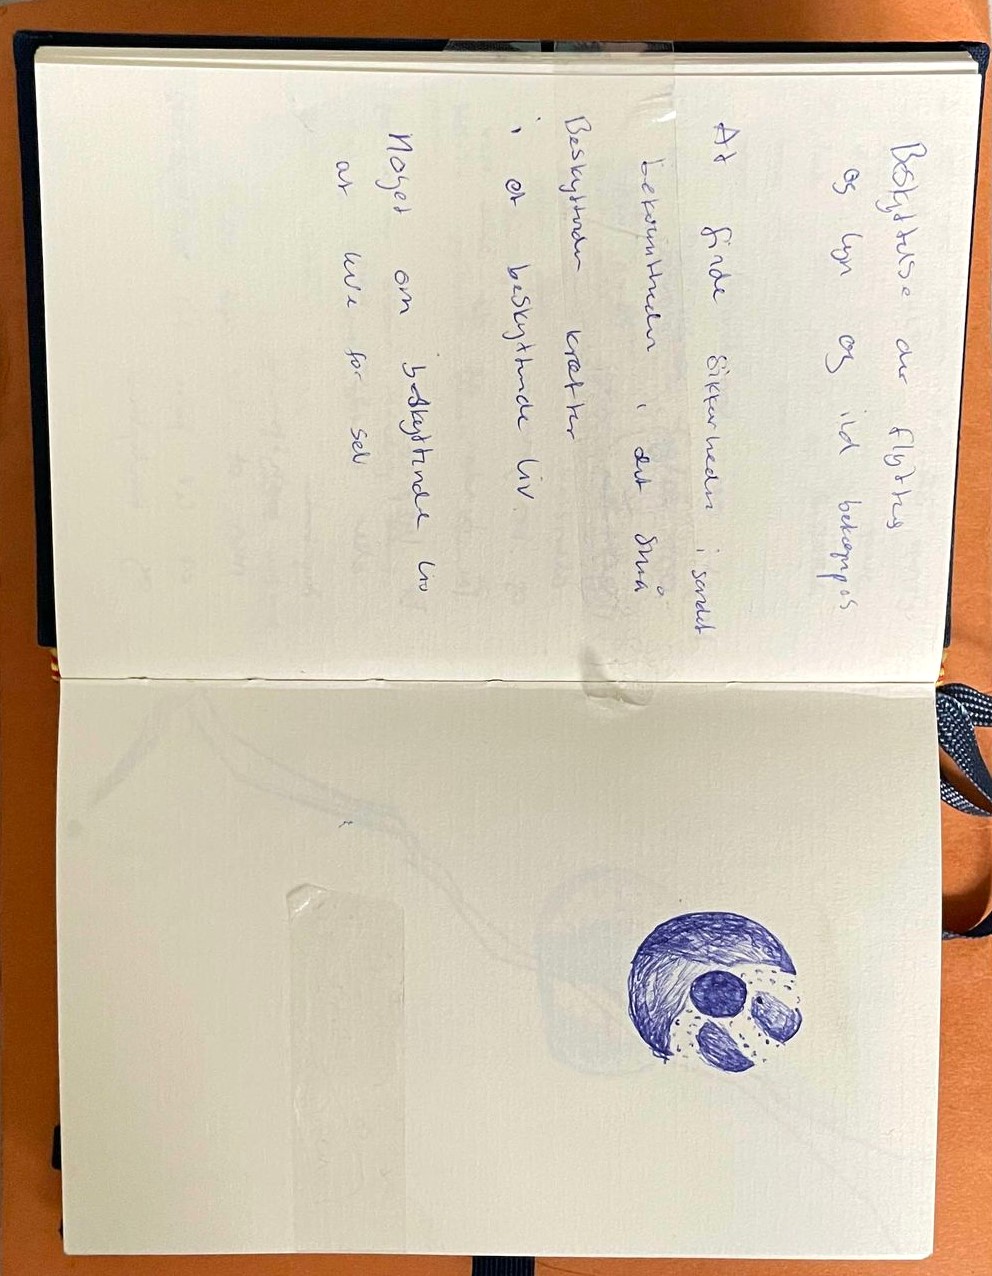 Beskyttelse der flyttes
og lyn og ild bekæmpes
At finde sikkerheden i sandet
bekæmtheden i det små
Beskyttende kræfter
i et beskyttende liv.
Noget om beskyttende liv
at leve for selv